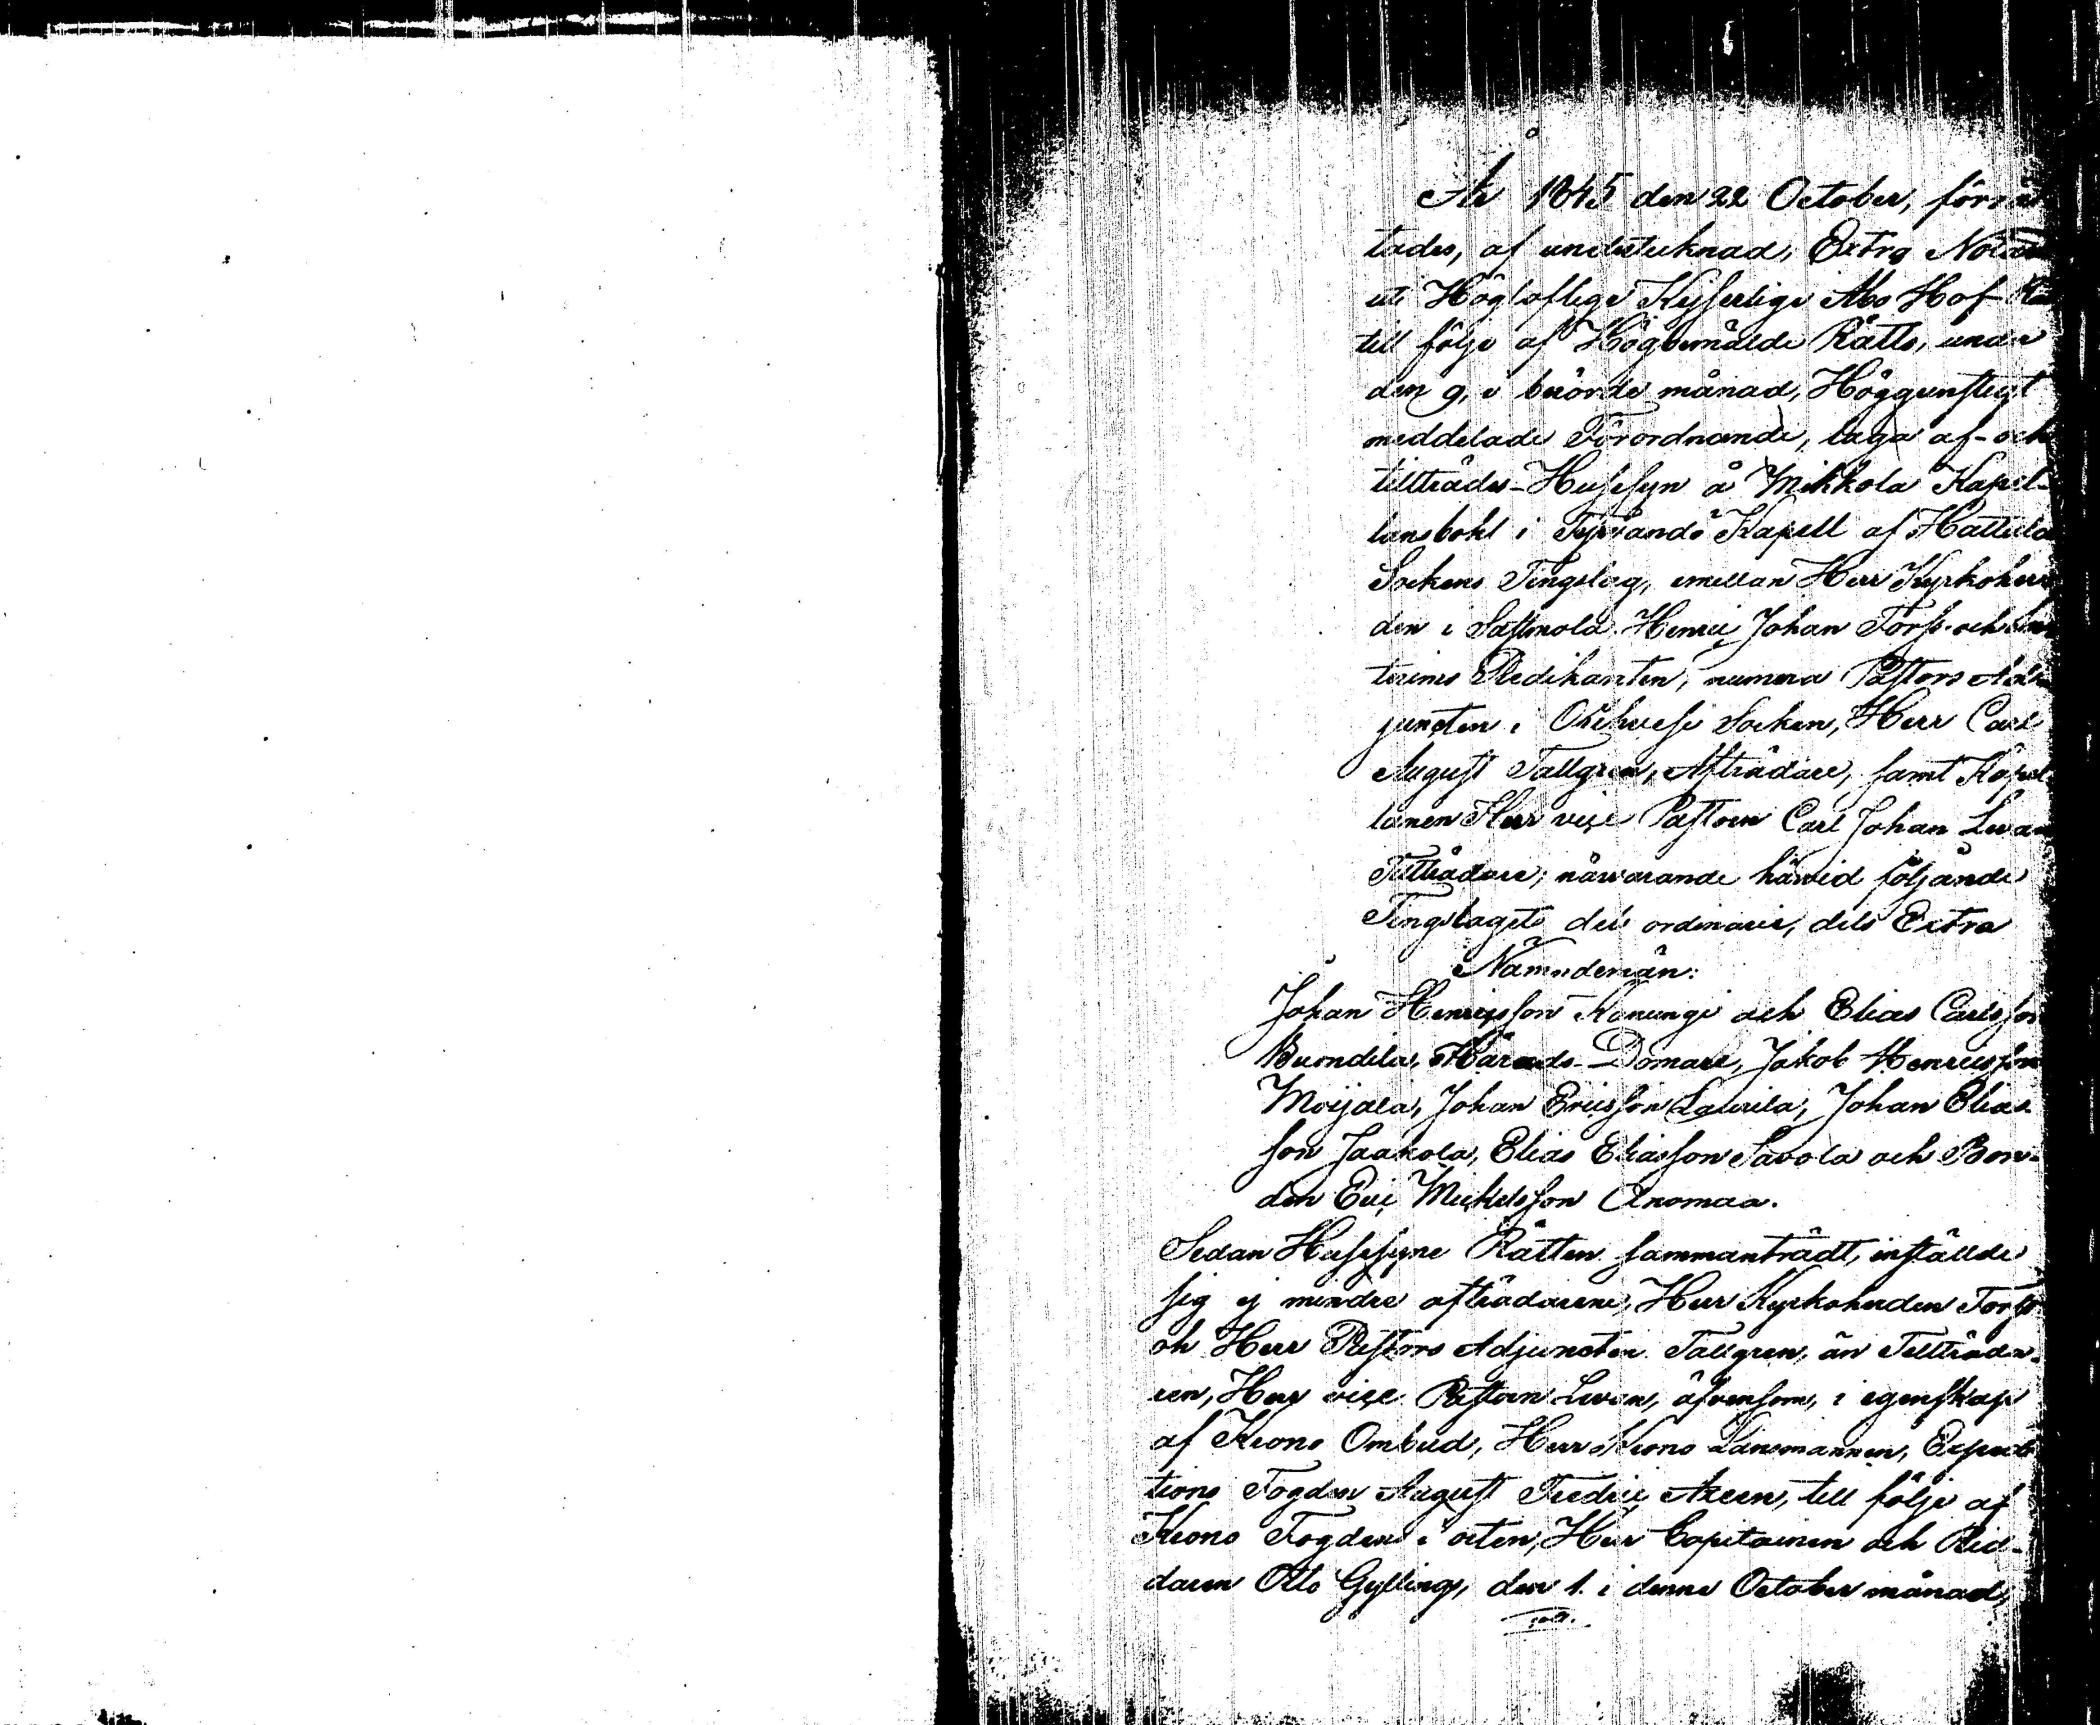 År 1845 den 22 October, förrät
tades, af undertecknad, Extra Notarie
uti Högloflige Kejserlige Åbo Hof-Rätt
till följe af Högbemälde Rätts, under
den 9, i berörde månad, Höggunstigt
meddelade Förordnande, laga af- och
tillträdes-Husesyn å Mikkola Kapel-
lansbohl i Tyrvändö Kapell af Hattula
Sockens Tingslag, emellan Herr Kyrkoherr
den i Sastmola Henric Johan Torss. och In
terims Predikanten, numera Pastors Ad-
juncten i Orihvesi Socken, Herr Carl
August Tallgren, Afträdare, samt Kapel
lanen Herr vice Pastorn Carl Johan Levan
Tillträdare; närvarande härvid följande
Tingslagets dels ordinarie, dels Extra
Nämndemän:
Johan Henricsson Konungi och Elias Carlsson
Buondila, Härads-Domare, Jakob Henricsson
Moijala, Johan Ericsson Laurila, Johan Elias
son Jaakola, Elias Eliasson Savola och Bon-
den Eric Mickelsson Anomaa.
Sedan Husesyne Rätten sammanträdt, inställde
sig ej mindre afträdarene, Herr Kyrkoherden Torss.
och Herr Pastors Adjuncten Tallgren, än Tillträda-
ren, Herr vice Pastorn Levan, äfvensom, i egenskap
af Krono Ombud, Herr Krono Länsmannen, Expedi
tions Fogden August Fredric Aréen, till följe af
Krono Fogdens i orten, Herr Capitainen och Rid-
daren Otto Gylling, den 1. i denne October månad,